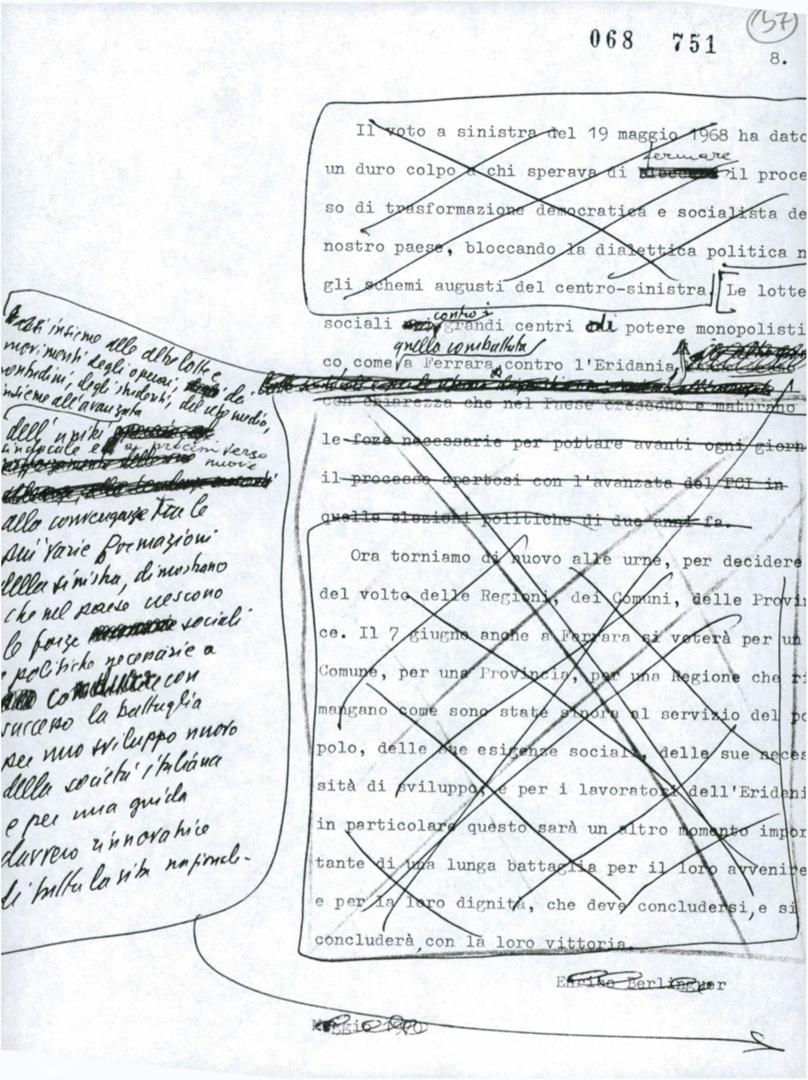 57
068 751
8.
Il voto a sinistra del 19 maggio 1968 ha dato
fermare
un duro colpo a chi sperava di il proce
so di trasformazione democratica e socialista de
nostro paese, bloccando la dialettica politica n
gli schemi augusti del centro-sinistra. Le lotte
contro i
sociali grandi centri di potere monopolisti
quella combattuta
co come a Ferrara contro l'Eridania,
con chiarezza che nel Paese crescono e maturano
le foze necessarie per pottare avanti ogni giorn
il processo apertosi con l'avanzata del PCI in
quelle elezioni politiche di due anni fa.
Ora torniamo di nuovo alle urne, per decidere
del volto delle Regioni, dei Comuni, delle Provin
ce. Il 7 giugno anche a Ferrara si voterà per un
Comune, per una Provincia, per una Regione che ri
mangano come sono state sinora al servizio del po
polo, delle sue esigenze sociali, delle sue neces
sità di sviluppo, e per i lavoratori dell'Eridani
in particolare questo sarà un altro momento impor
tante di una lunga battaglia per il loro avvenire
e per la loro dignità, che deve concludersi, e si
concluderà con la loro vittoria.
Enrico Berlinguer
Maggio 1970
insieme alle altre lotte e
movimenti degli operai, de
contadini, degli studenti, del ceto medio,
insieme all'avanzata
dell'unità
sindacale e a processi verso
nuove
alla convergenza tra le
più varie formazioni
della sinistra, dimostrano
che nel paese crescono
le forze sociali
e politiche necessarie a
con
successo la battaglia
per uno sviluppo nuovo
della società italiana
e per una guida
davvero innovatrice
di tutta la vita nazionale.